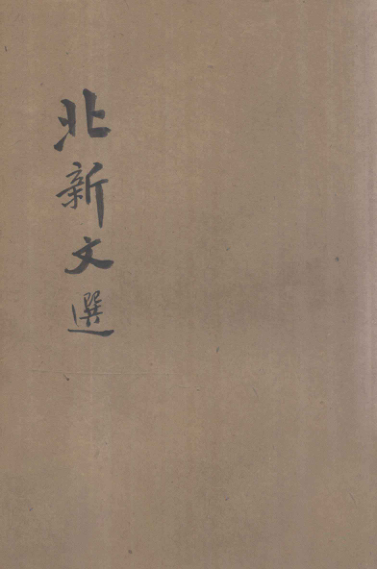 北新文選